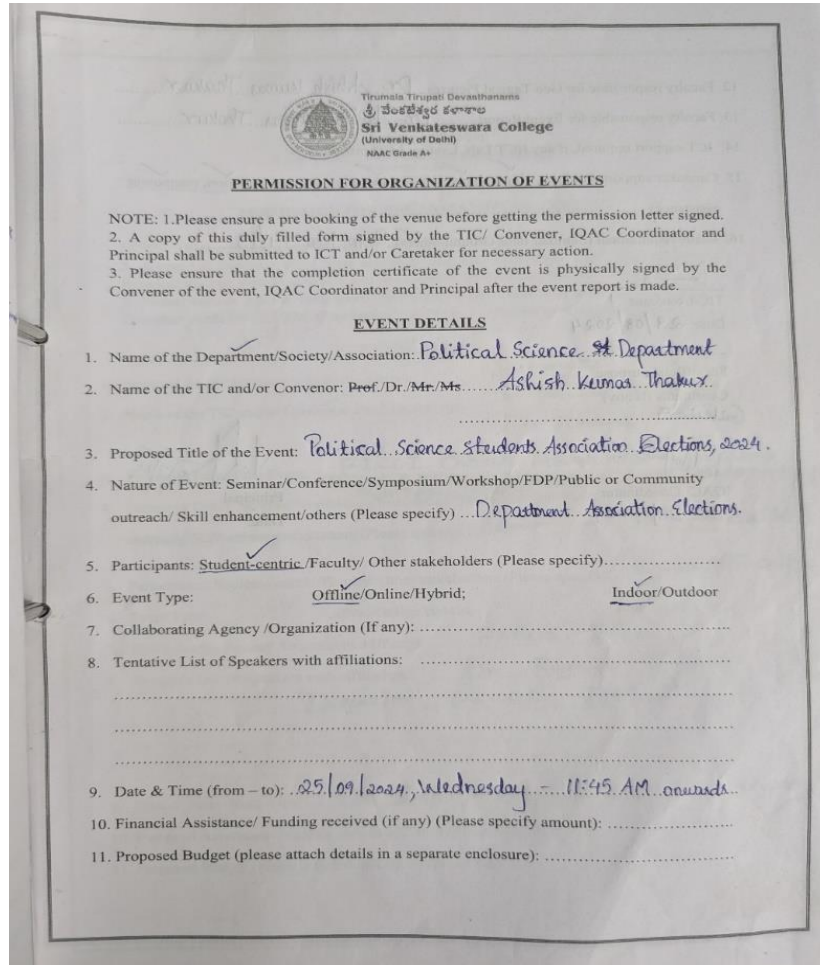 Tirumala Tirupati Devasthanams
శ్రీ వేంకటేశ్వర కళాశాల
Sri Venkateswara College
(University of Delhi)
NAAC Grade A+
PERMISSION FOR ORGANIZATION OF EVENTS
NOTE: 1.Please ensure a pre booking of the venue before getting the permission letter signed.
2. A copy of this duly filled form signed by the TIC/ Convener, IQAC Coordinator and
Principal shall be submitted to ICT and/or Caretaker for necessary action.
3. Please ensure that the completion certificate of the event is physically signed by the
Convener of the event, IQAC Coordinator and Principal after the event report is made.
EVENT DETAILS
1. Name of the Department/Society/Association: Political Science Department
2. Name of the TIC and/or Convenor: Prof./Dr./Mr./Ms....... Ashish Kumar Thakur
3. Proposed Title of the Event: Political Science Students Association Elections, 2024.
4. Nature of Event: Seminar/Conference/Symposium/Workshop/FDP/Public or Community
outreach/ Skill enhancement/others (Please specify) ...Department Association Elections.
5. Participants: Student-centric /Faculty/ Other stakeholders (Please specify)......................
6. Event Type: Offline/Online/Hybrid; Indoor/Outdoor
7. Collaborating Agency /Organization (If any): ..........................................................
8. Tentative List of Speakers with affiliations: ..........................................................
9. Date & Time (from – to): 25/09/2024, Wednesday - 11:45 AM onwards
10. Financial Assistance/ Funding received (if any) (Please specify amount): ........................
11. Proposed Budget (please attach details in a separate enclosure): ....................................